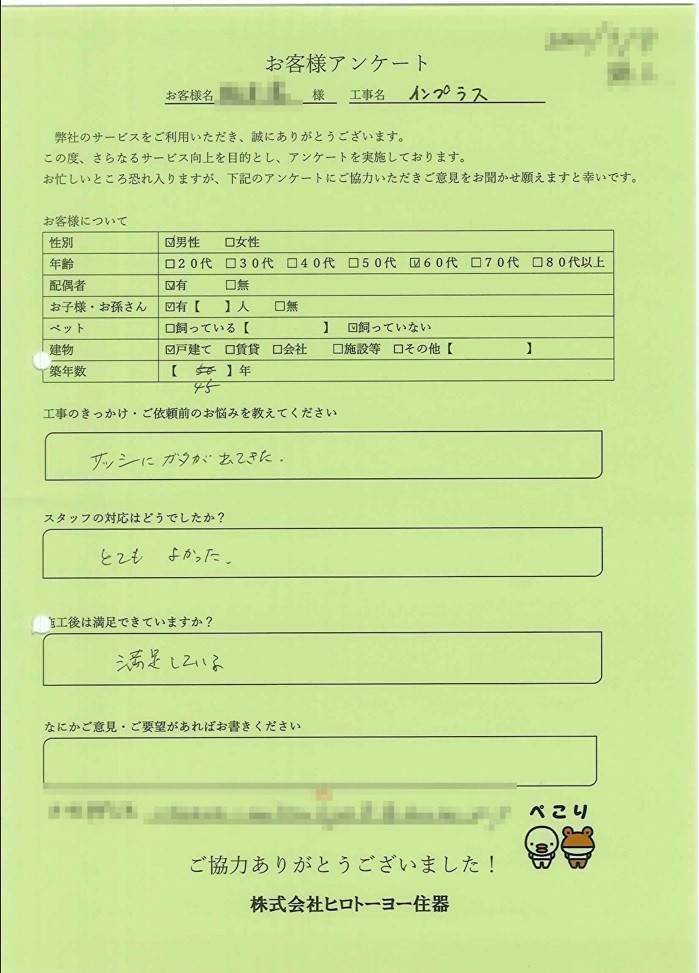 お客様アンケート
お客様名 様 工事名 インプラス
弊社のサービスをご利用いただき、誠にありがとうございます。
この度、さらなるサービス向上を目的とし、アンケートを実施しております。
お忙しいところ恐れ入りますが、下記のアンケートにご協力いただきご意見をお聞かせ願えますと幸いです。
お客様について
性別 ☑男性 □女性
年齢 □20代 □30代 □40代 □50代 ☑60代 □70代 □80代以上
配偶者 ☑有 □無
お子様・お孫さん ☑有【 】人 □無
ペット □飼っている【 】 ☑飼っていない
建物 ☑戸建て □賃貸 □会社 □施設等 □その他【 】
築年数 【 】年
45
工事のきっかけ・ご依頼前のお悩みを教えてください
サッシにガタが出てきた.
スタッフの対応はどうでしたか?
とても よかった.
施工後は満足できていますか?
満足している
なにかご意見・ご要望があればお書きください
ぺこり
ご協力ありがとうございました!
株式会社ヒロトーヨー住器